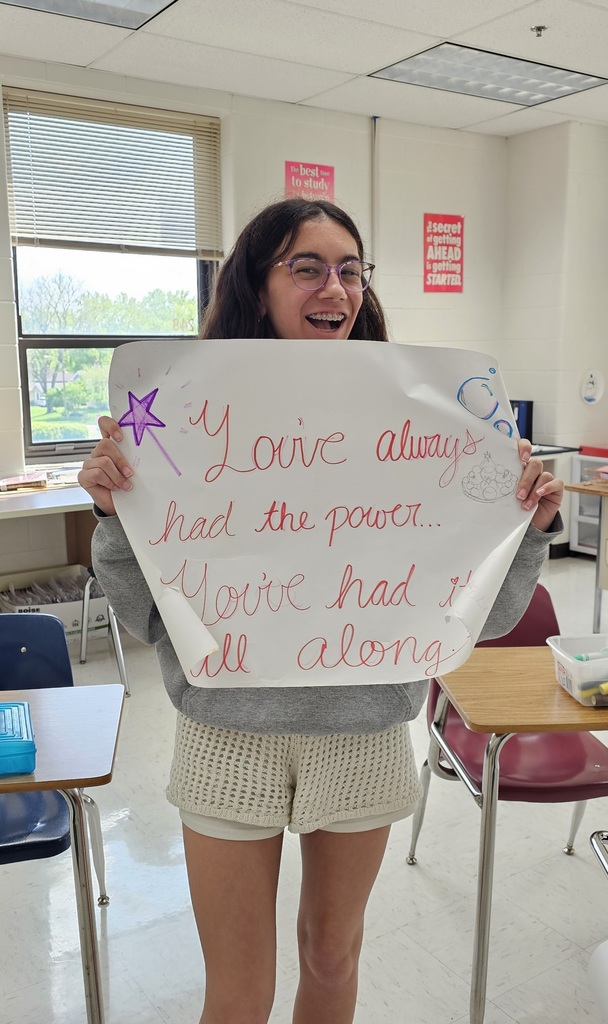 The best
to study
The secret
of getting
AHEAD
is getting
STARTED
You've always
had the power...
You've had it
all along.